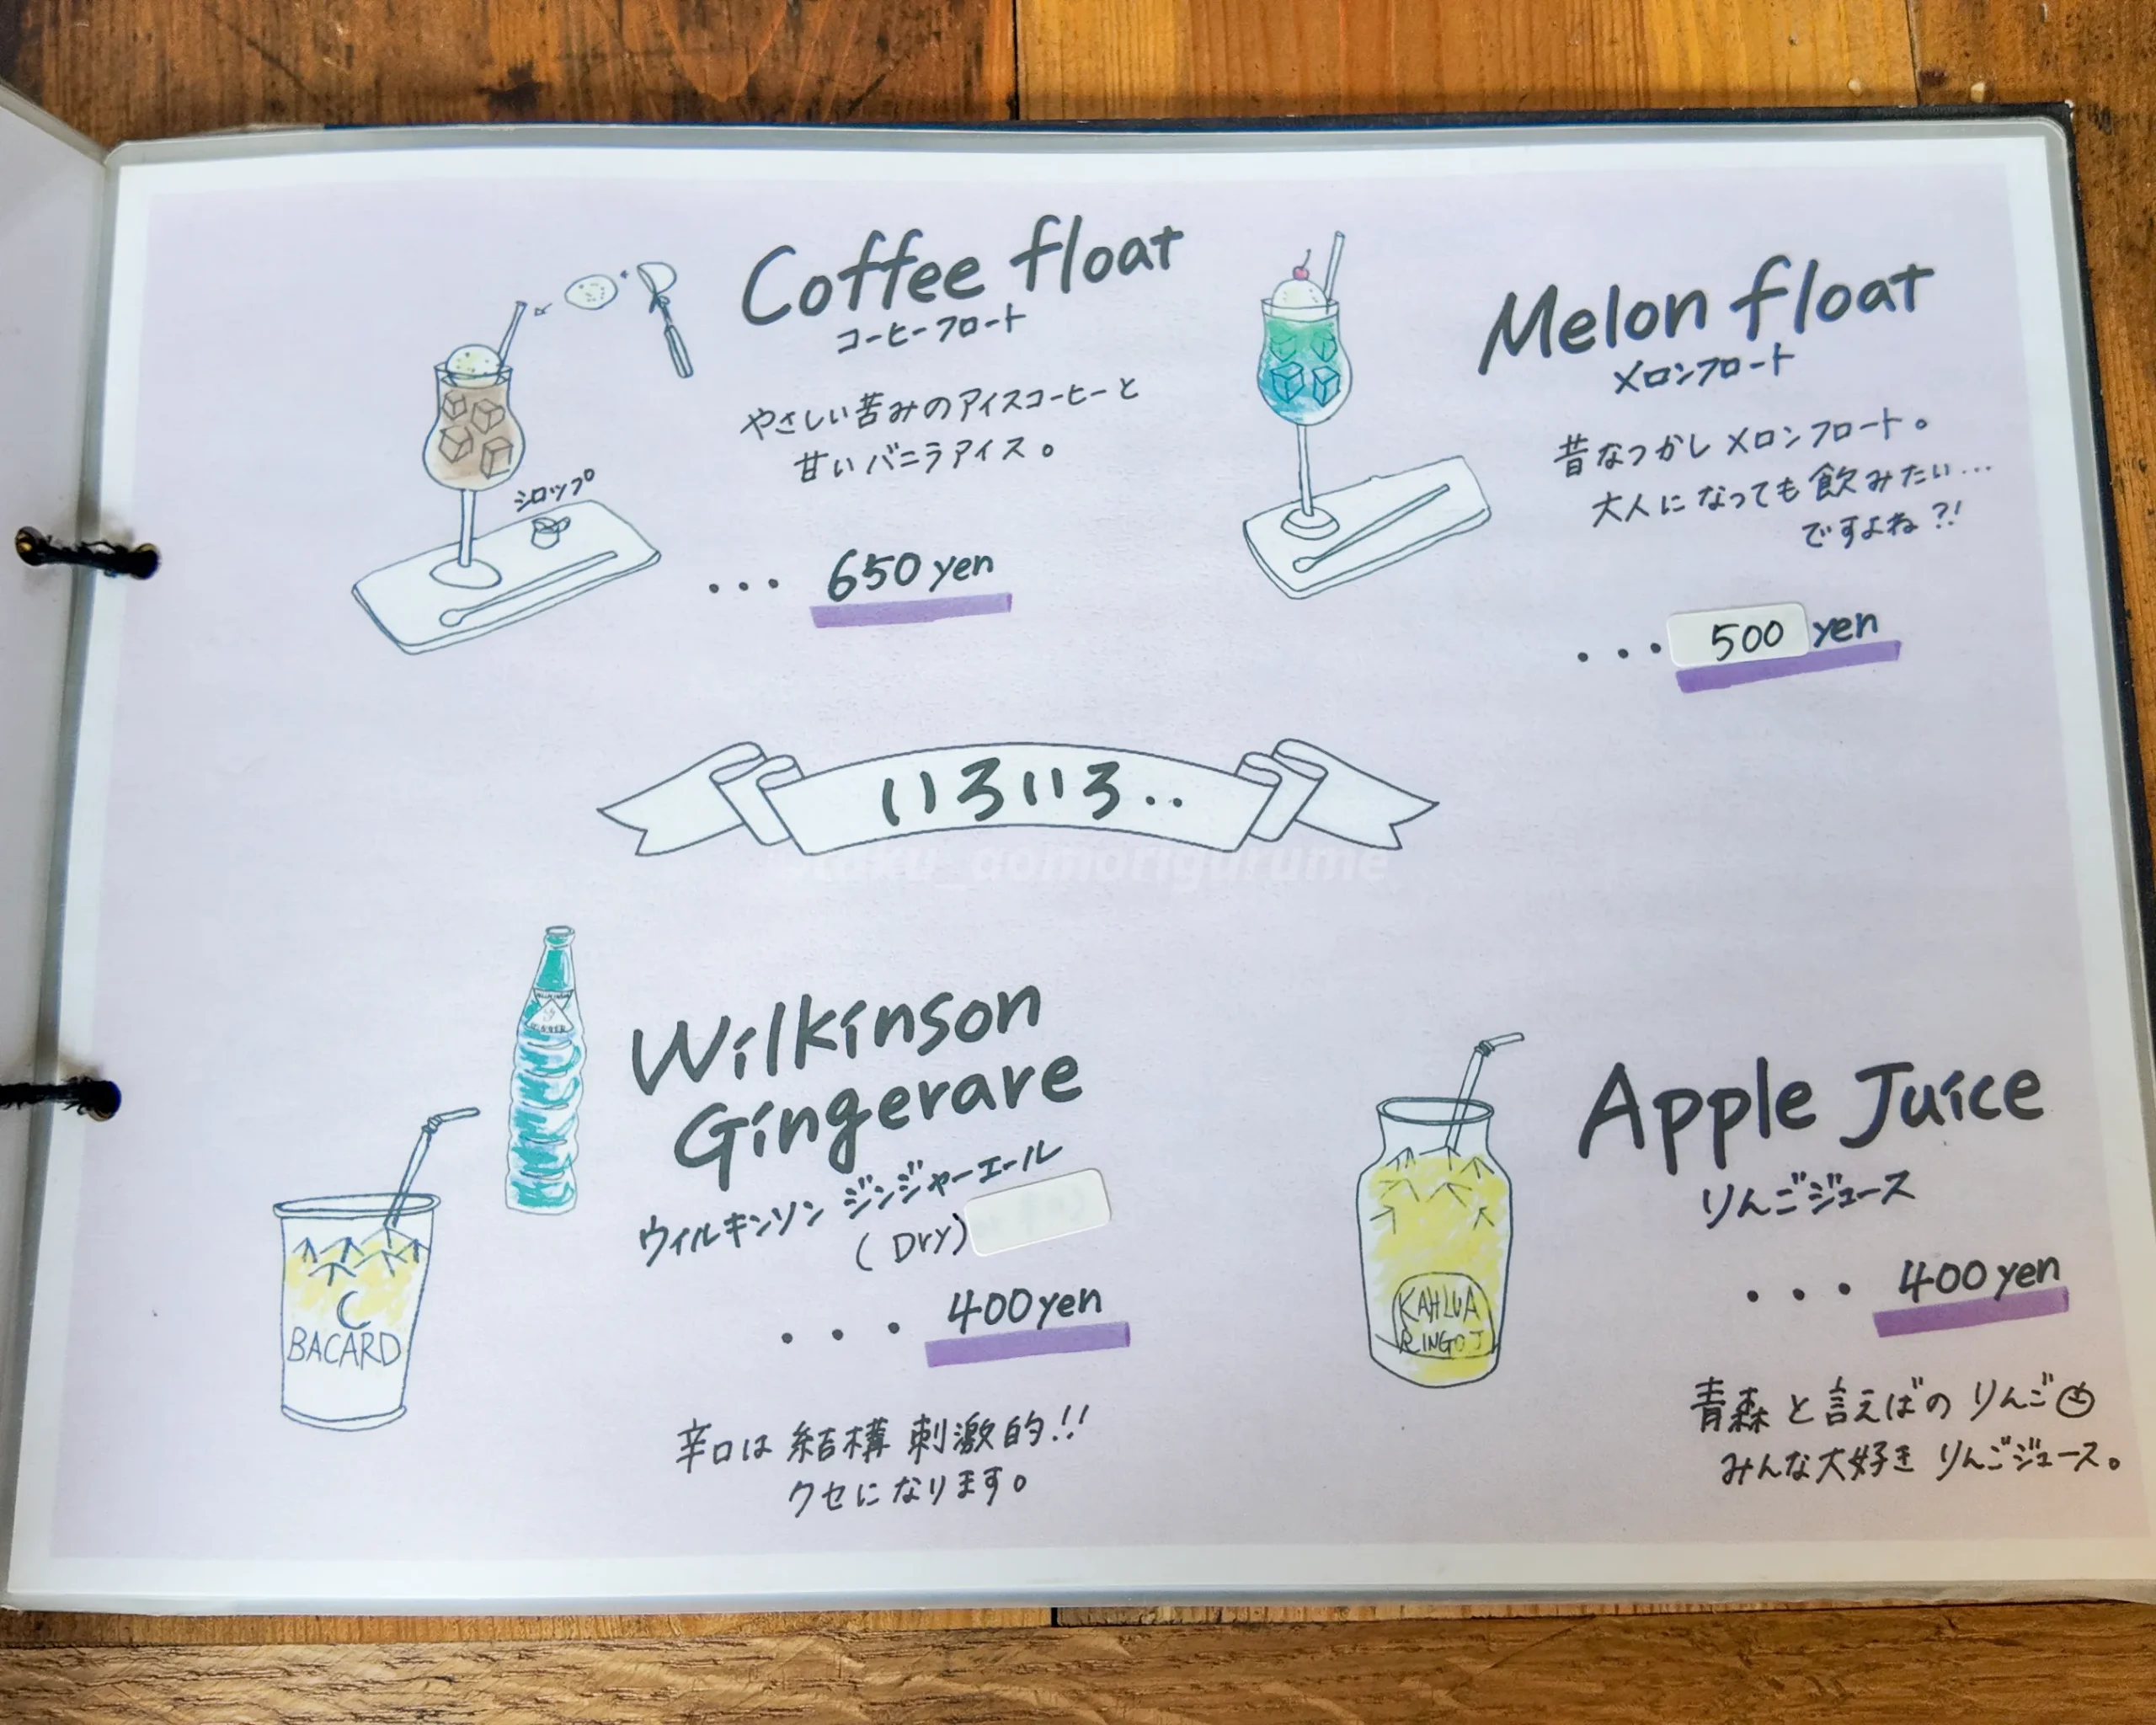 Coffee float
コーヒーフロート
やさしい苦みのアイスコーヒーと
甘いバニラアイス。
シロップ
... 650yen
Melon float
メロンフロート
昔なつかしメロンフロート。
大人になっても飲みたい...
ですよね?!
...500yen
いろいろ..
otaku_aomorigurume
Wilkinson
Gingerare
ウィルキンソン ジンジャーエール
(Dry)
... 400yen
辛口は結構刺激的!!
クセになります。
BACARD
Apple Juice
りんごジュース
... 400yen
KAHLUA
RINGO J
青森と言えばの りんご
みんな大好き りんごジュース。